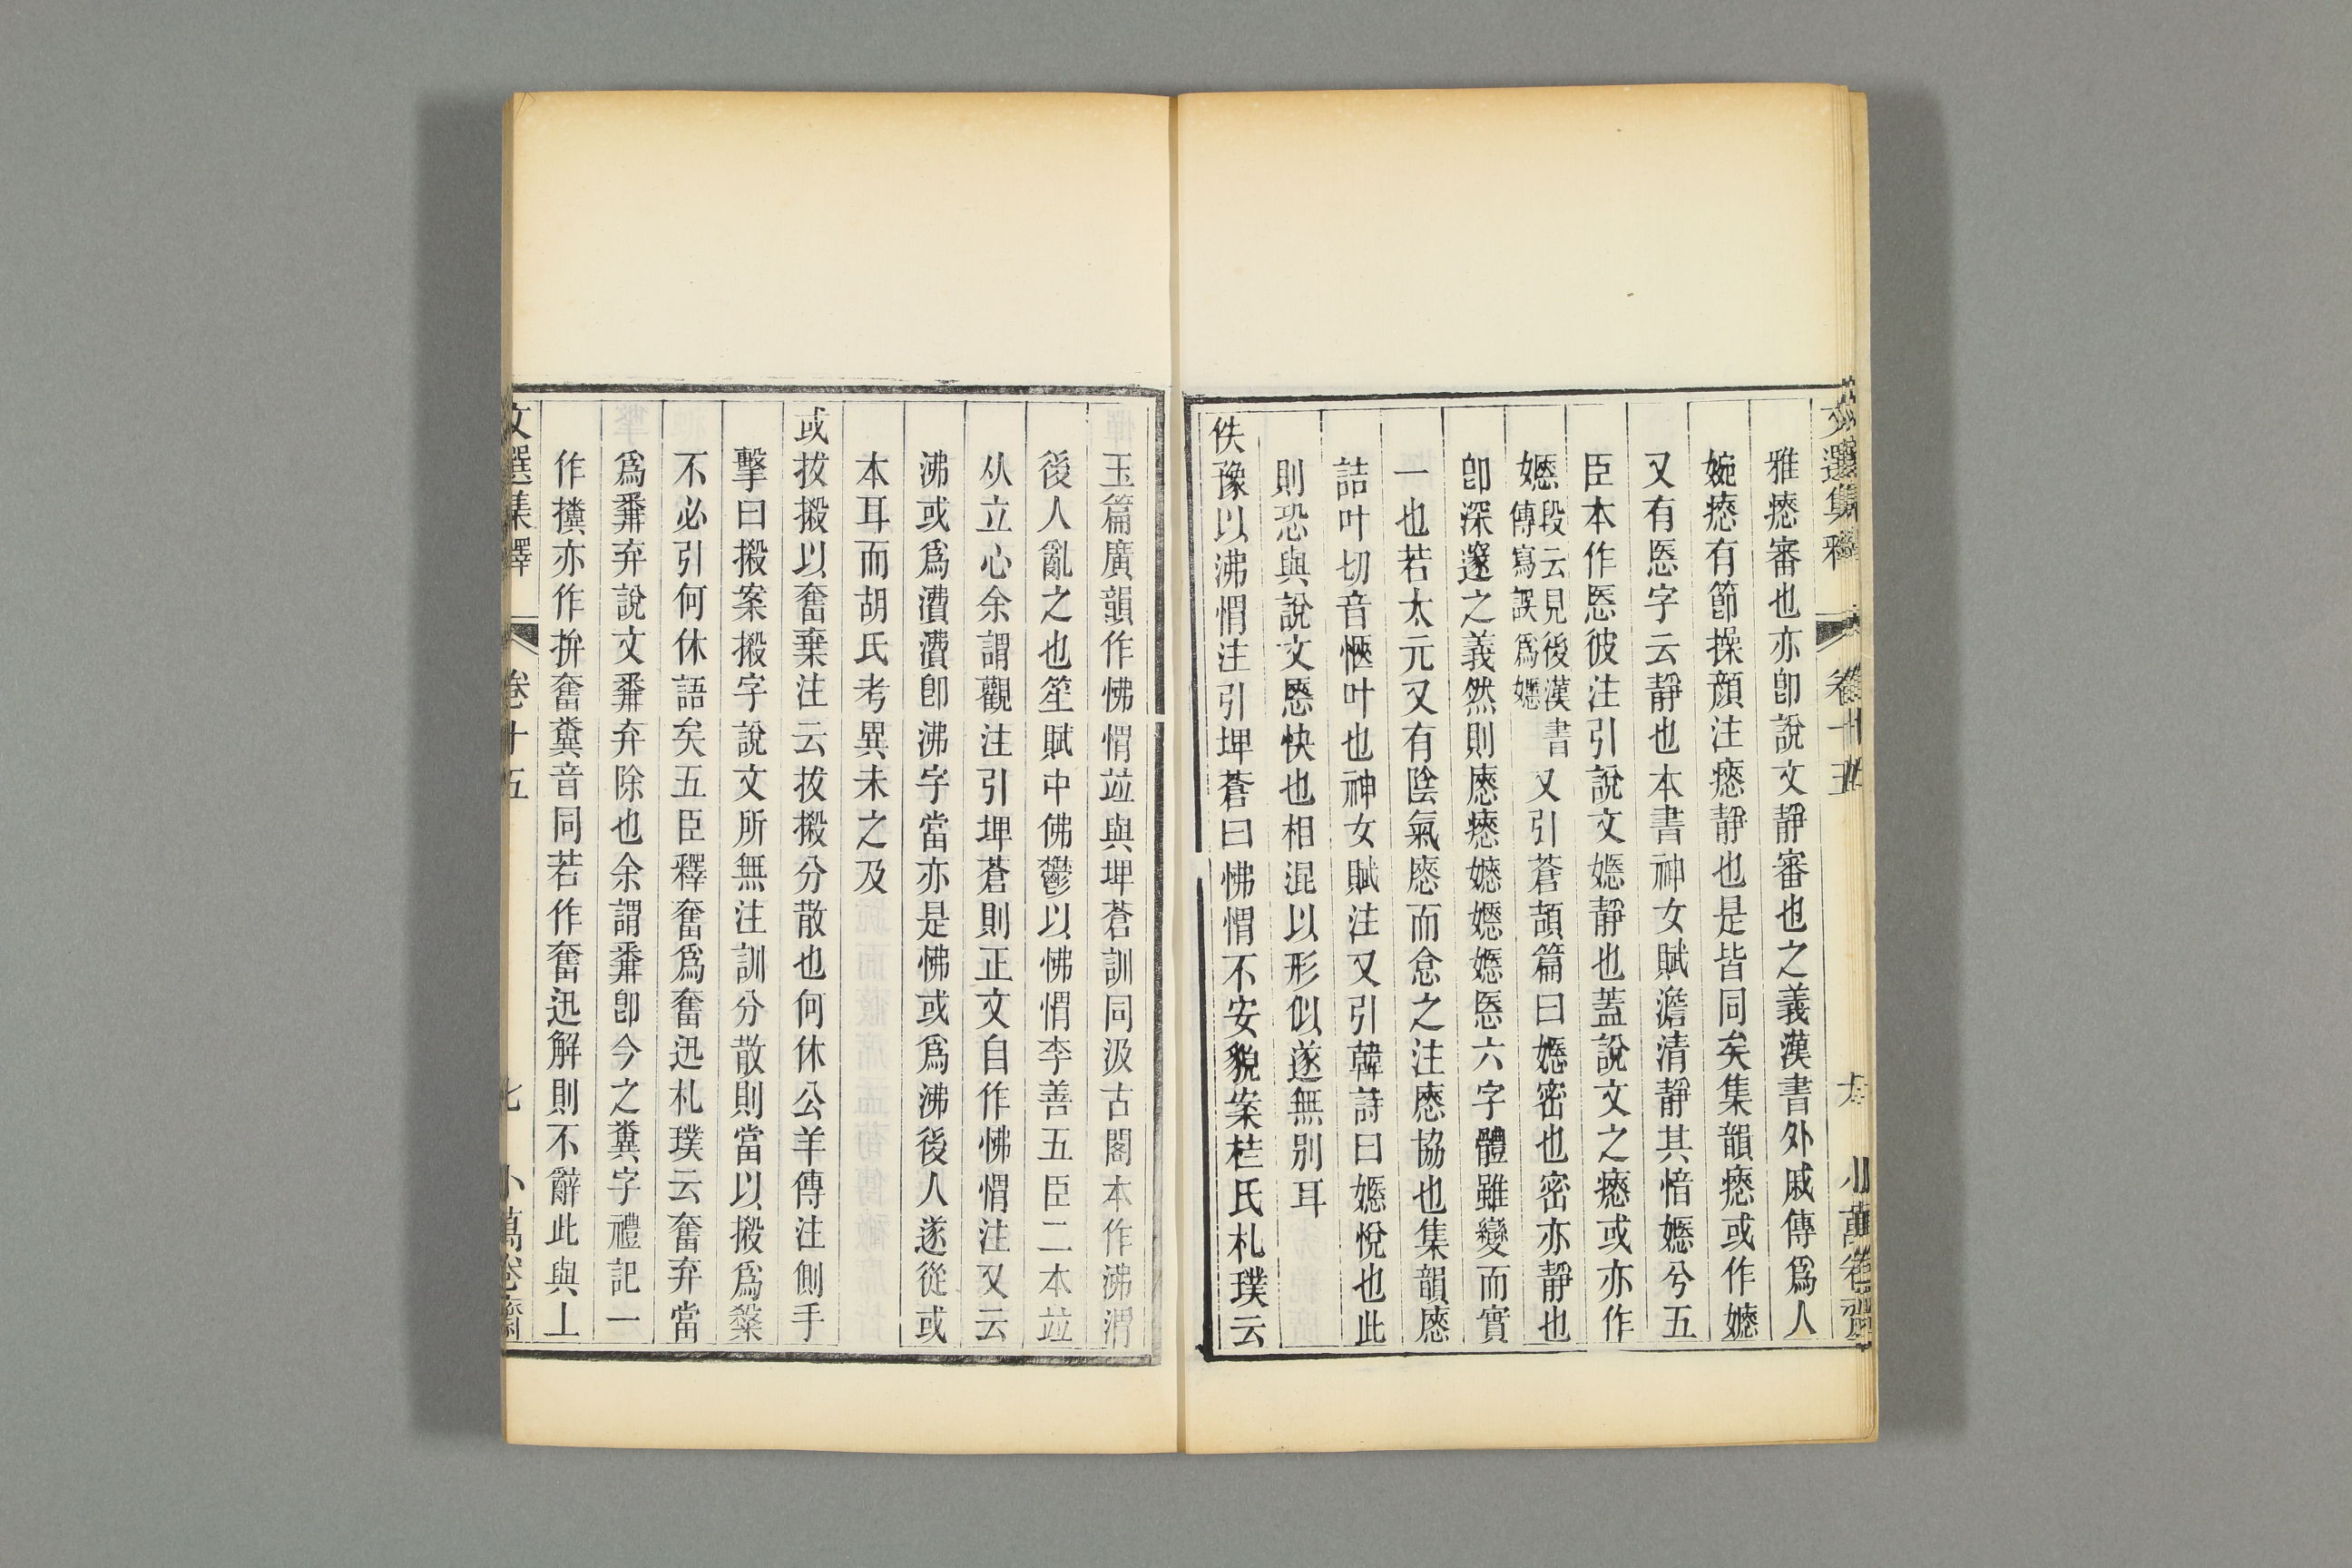 雅瘱審也亦卽說文靜審也之義漢書外戚傳爲人
婉瘱有節操顏注瘱靜也是皆同矣集韻瘱或作嫕
又有㥷字云靜也本書神女賦澹清靜其愔嫕兮五
臣本作㥷彼注引說文嫕靜也蓋說文之瘱或亦作
嫕段云見後漢書傳寫誤爲嫕又引蒼頡篇曰嫕密也密亦靜也
卽深邃之義然則㥦瘱嫕㥷六字體雖變而實
一也若太元又有陰氣㥦而念之注㥦協也集韻㥦
詰叶切音愜叶也神女賦注又引韓詩曰嫕悅也此
則恐與說文㥦快也相混以形似遂無別耳
佚豫以沸㥜注引埤蒼曰怫㥜不安貌案桂氏札璞云
玉篇廣韻作怫㥜竝與埤蒼訓同汲古閣本作沸渭
後人亂之也笙賦中佛鬱以怫㥜李善五臣二本竝
从立心余謂觀注引埤蒼則正文自作怫㥜注又云
沸或爲灒灒卽沸字當亦是怫或爲沸後人遂從或
本耳而胡氏考異未之及
或拔摋以奮棄注云拔摋分散也何休公羊傳注側手
擊曰摋案摋字說文所無注訓分散則當以摋爲㯲
不必引何休語矣五臣釋奮爲奮迅札璞云奮弃當
爲𡊅弃說文𡊅弃除也余謂𡊅卽今之糞字禮記一
作㩔亦作拚奮糞音同若作奮迅解則不辭此與上
文選集釋 卷十五 七 小萬卷齋